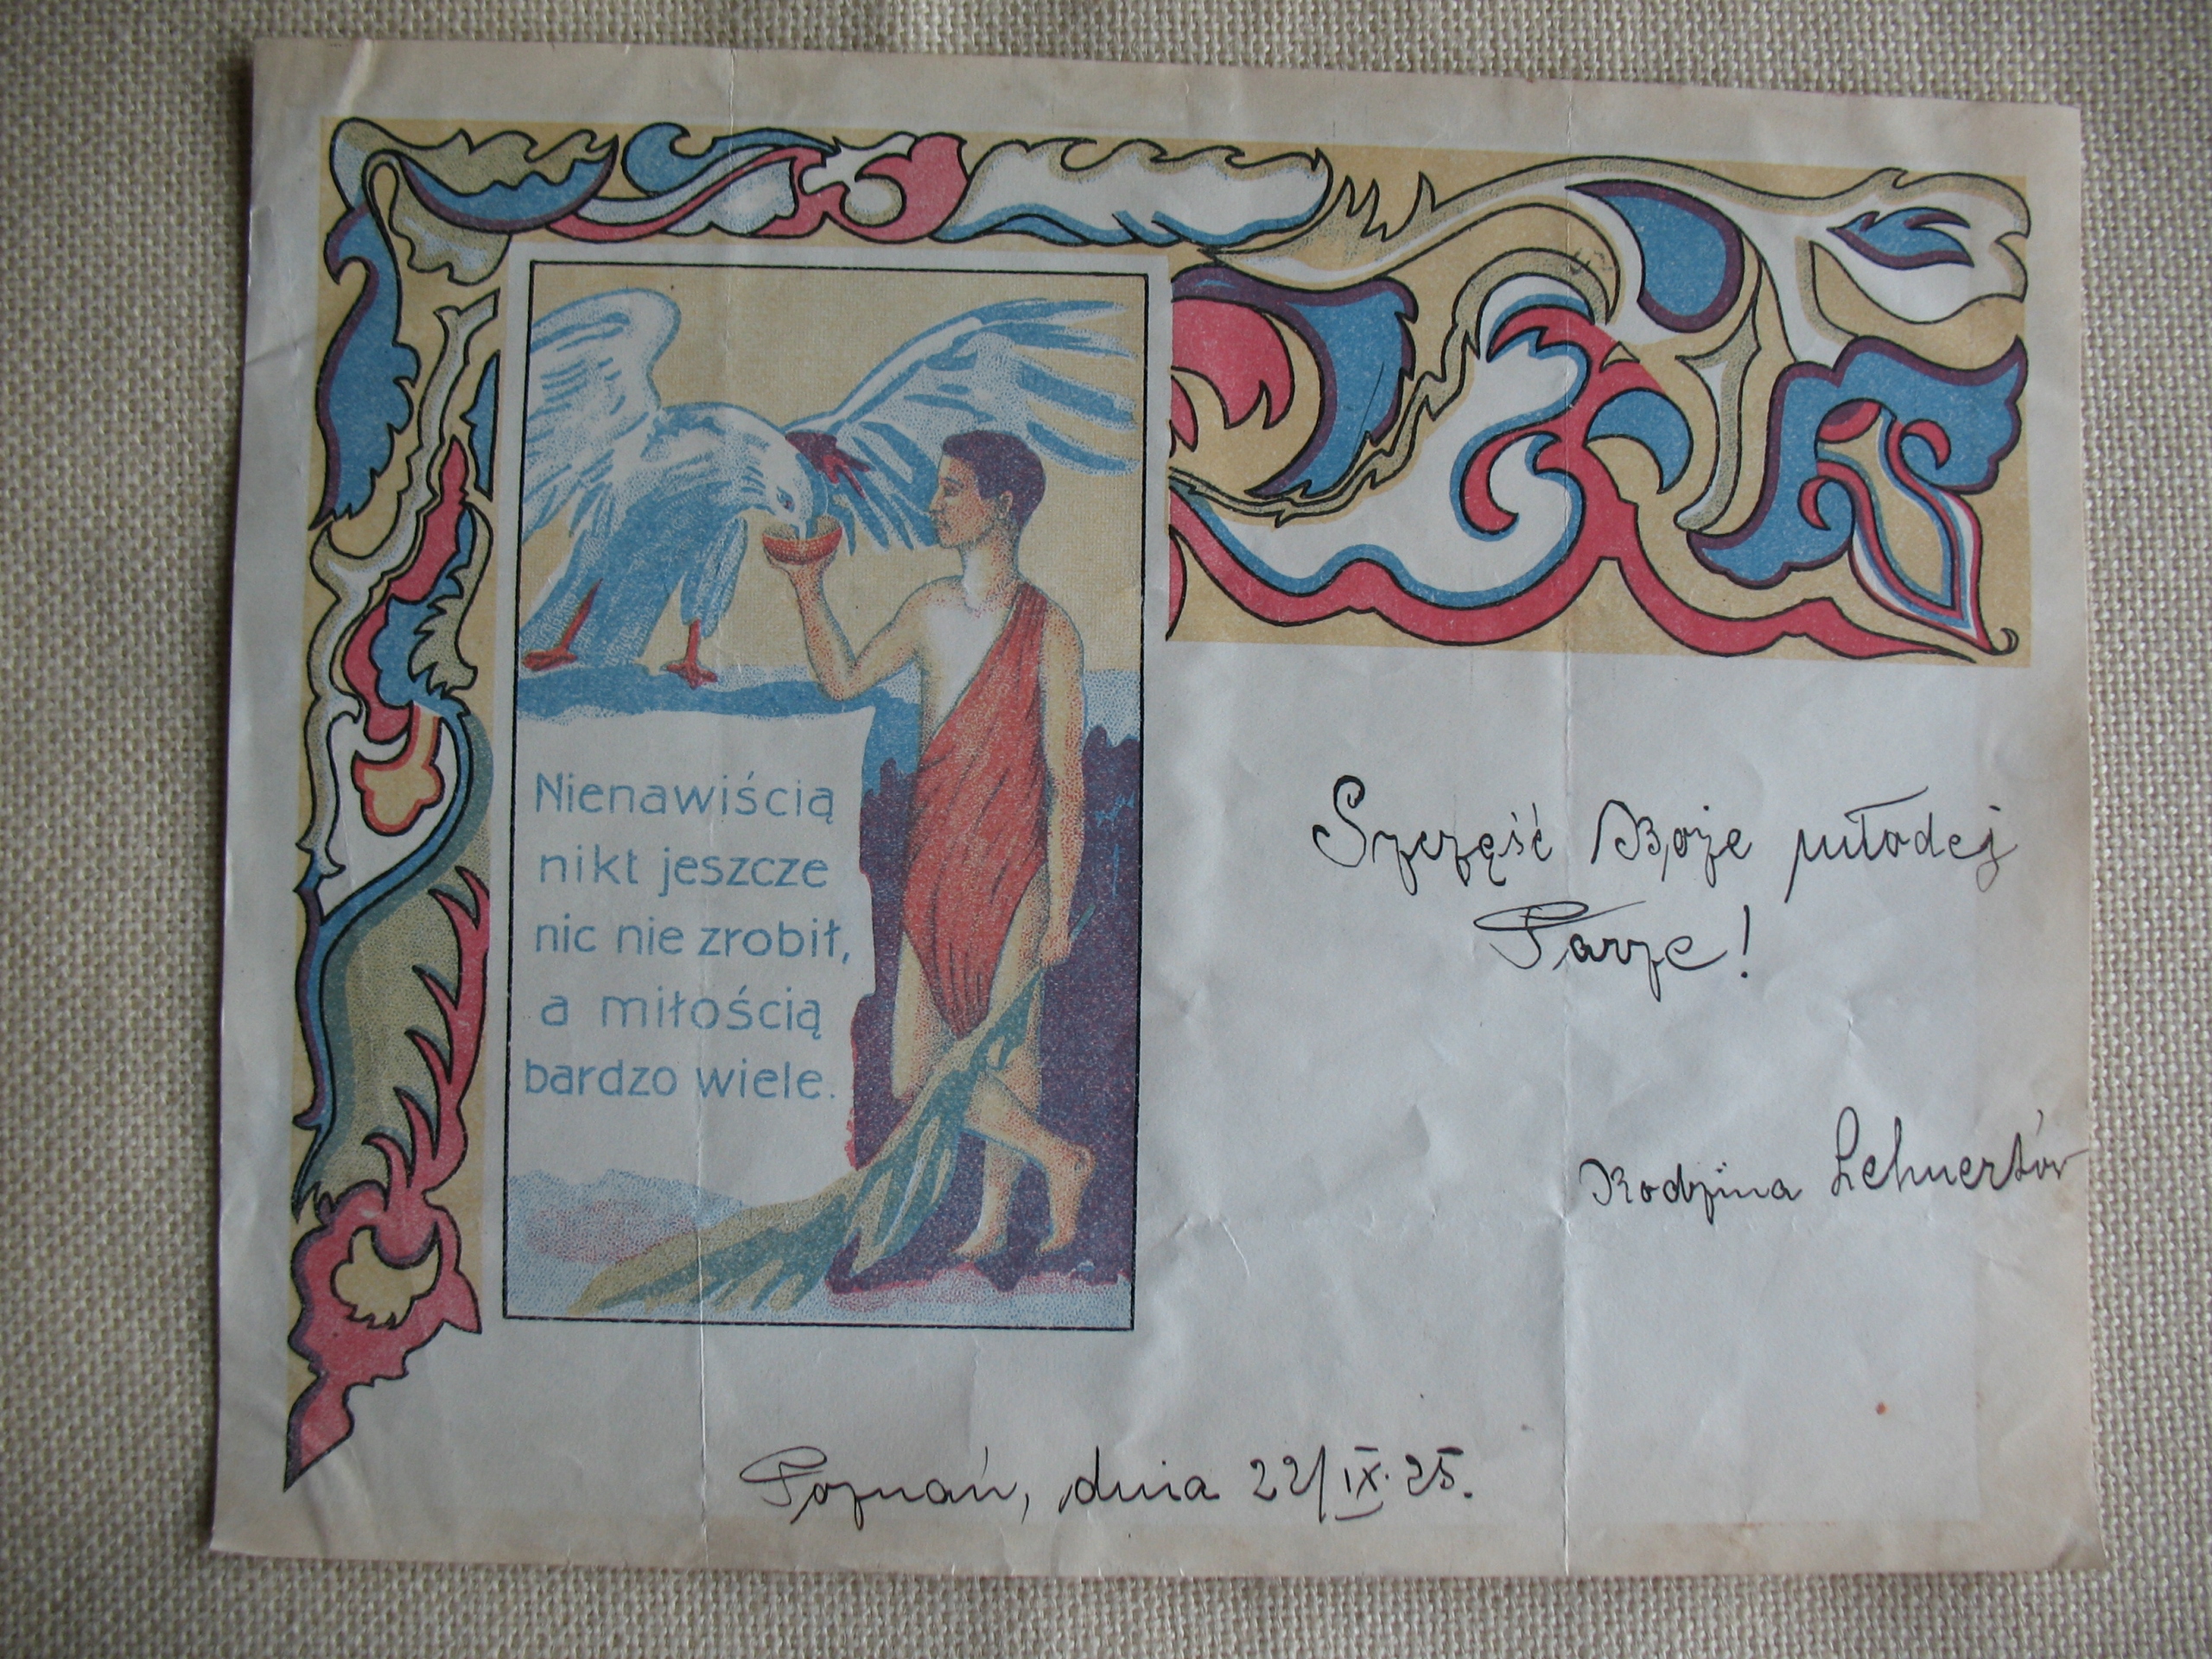 Nienawiścią
nikt jeszcze
nic nie zrobił,
a miłością
bardzo wiele.
Szczęść Boże młodej
Parze!
Rodzina Lehnertów
Poznań, dnia 22/IX. 25.